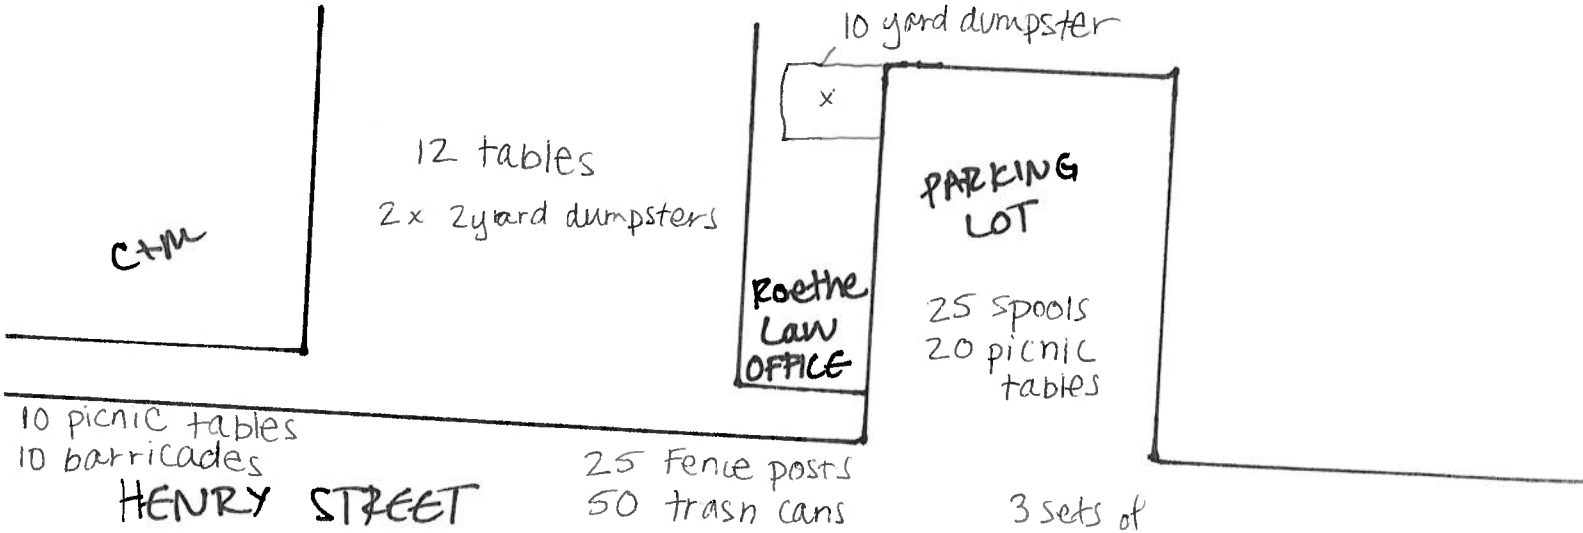 10 yard dumpster
x
12 tables
2x 2yard dumpsters
C+M
PARKING
LOT
Roethe
Law
OFFICE
25 spools
20 picnic
tables
10 picnic tables
10 barricades
HENRY STREET
25 Fence posts
50 trash cans
3 sets of